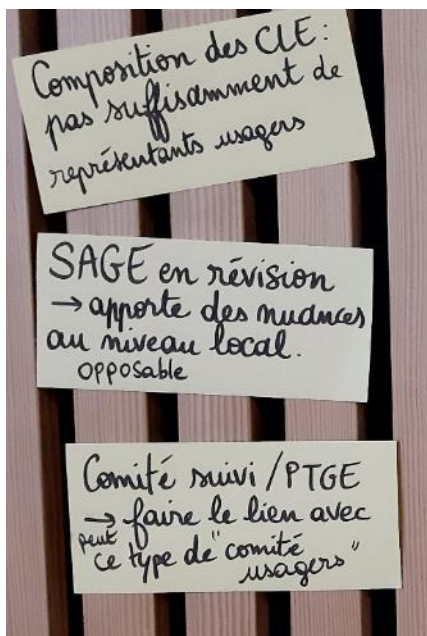 Composition des CLE :
pas suffisamment de
représentants usagers
SAGE en révision
→ apporte des nuances
au niveau local.
opposable
Comité suivi / PTGE
→ faire le lien avec
peut
ce type de "comité
usagers"